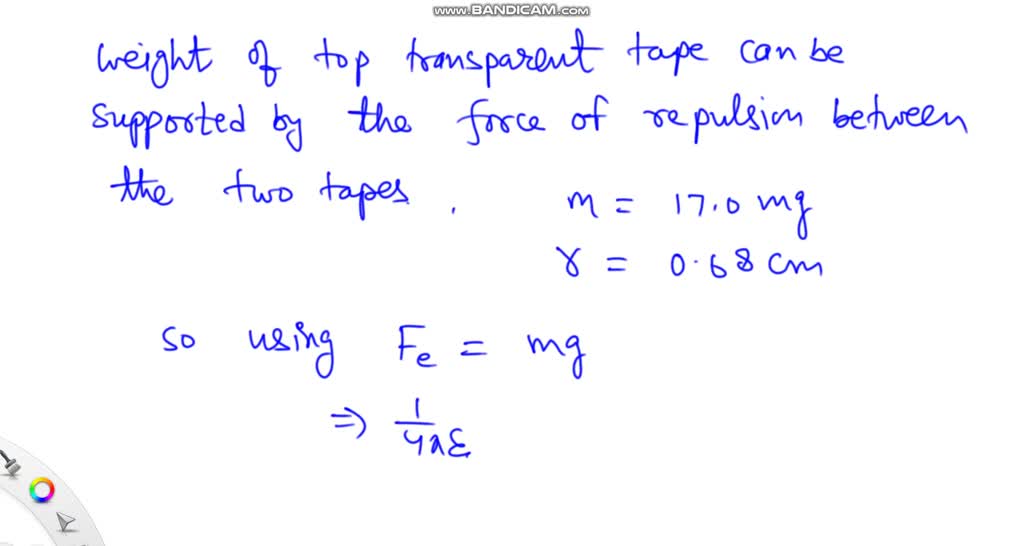 www.BANDICAM.com
weight of top transparent tape can be
supported by the force of repulsion between
the two tapes.
m = 17.0 mg
r = 0.68 cm
so using Fe = mg
⇒ 1/4πε